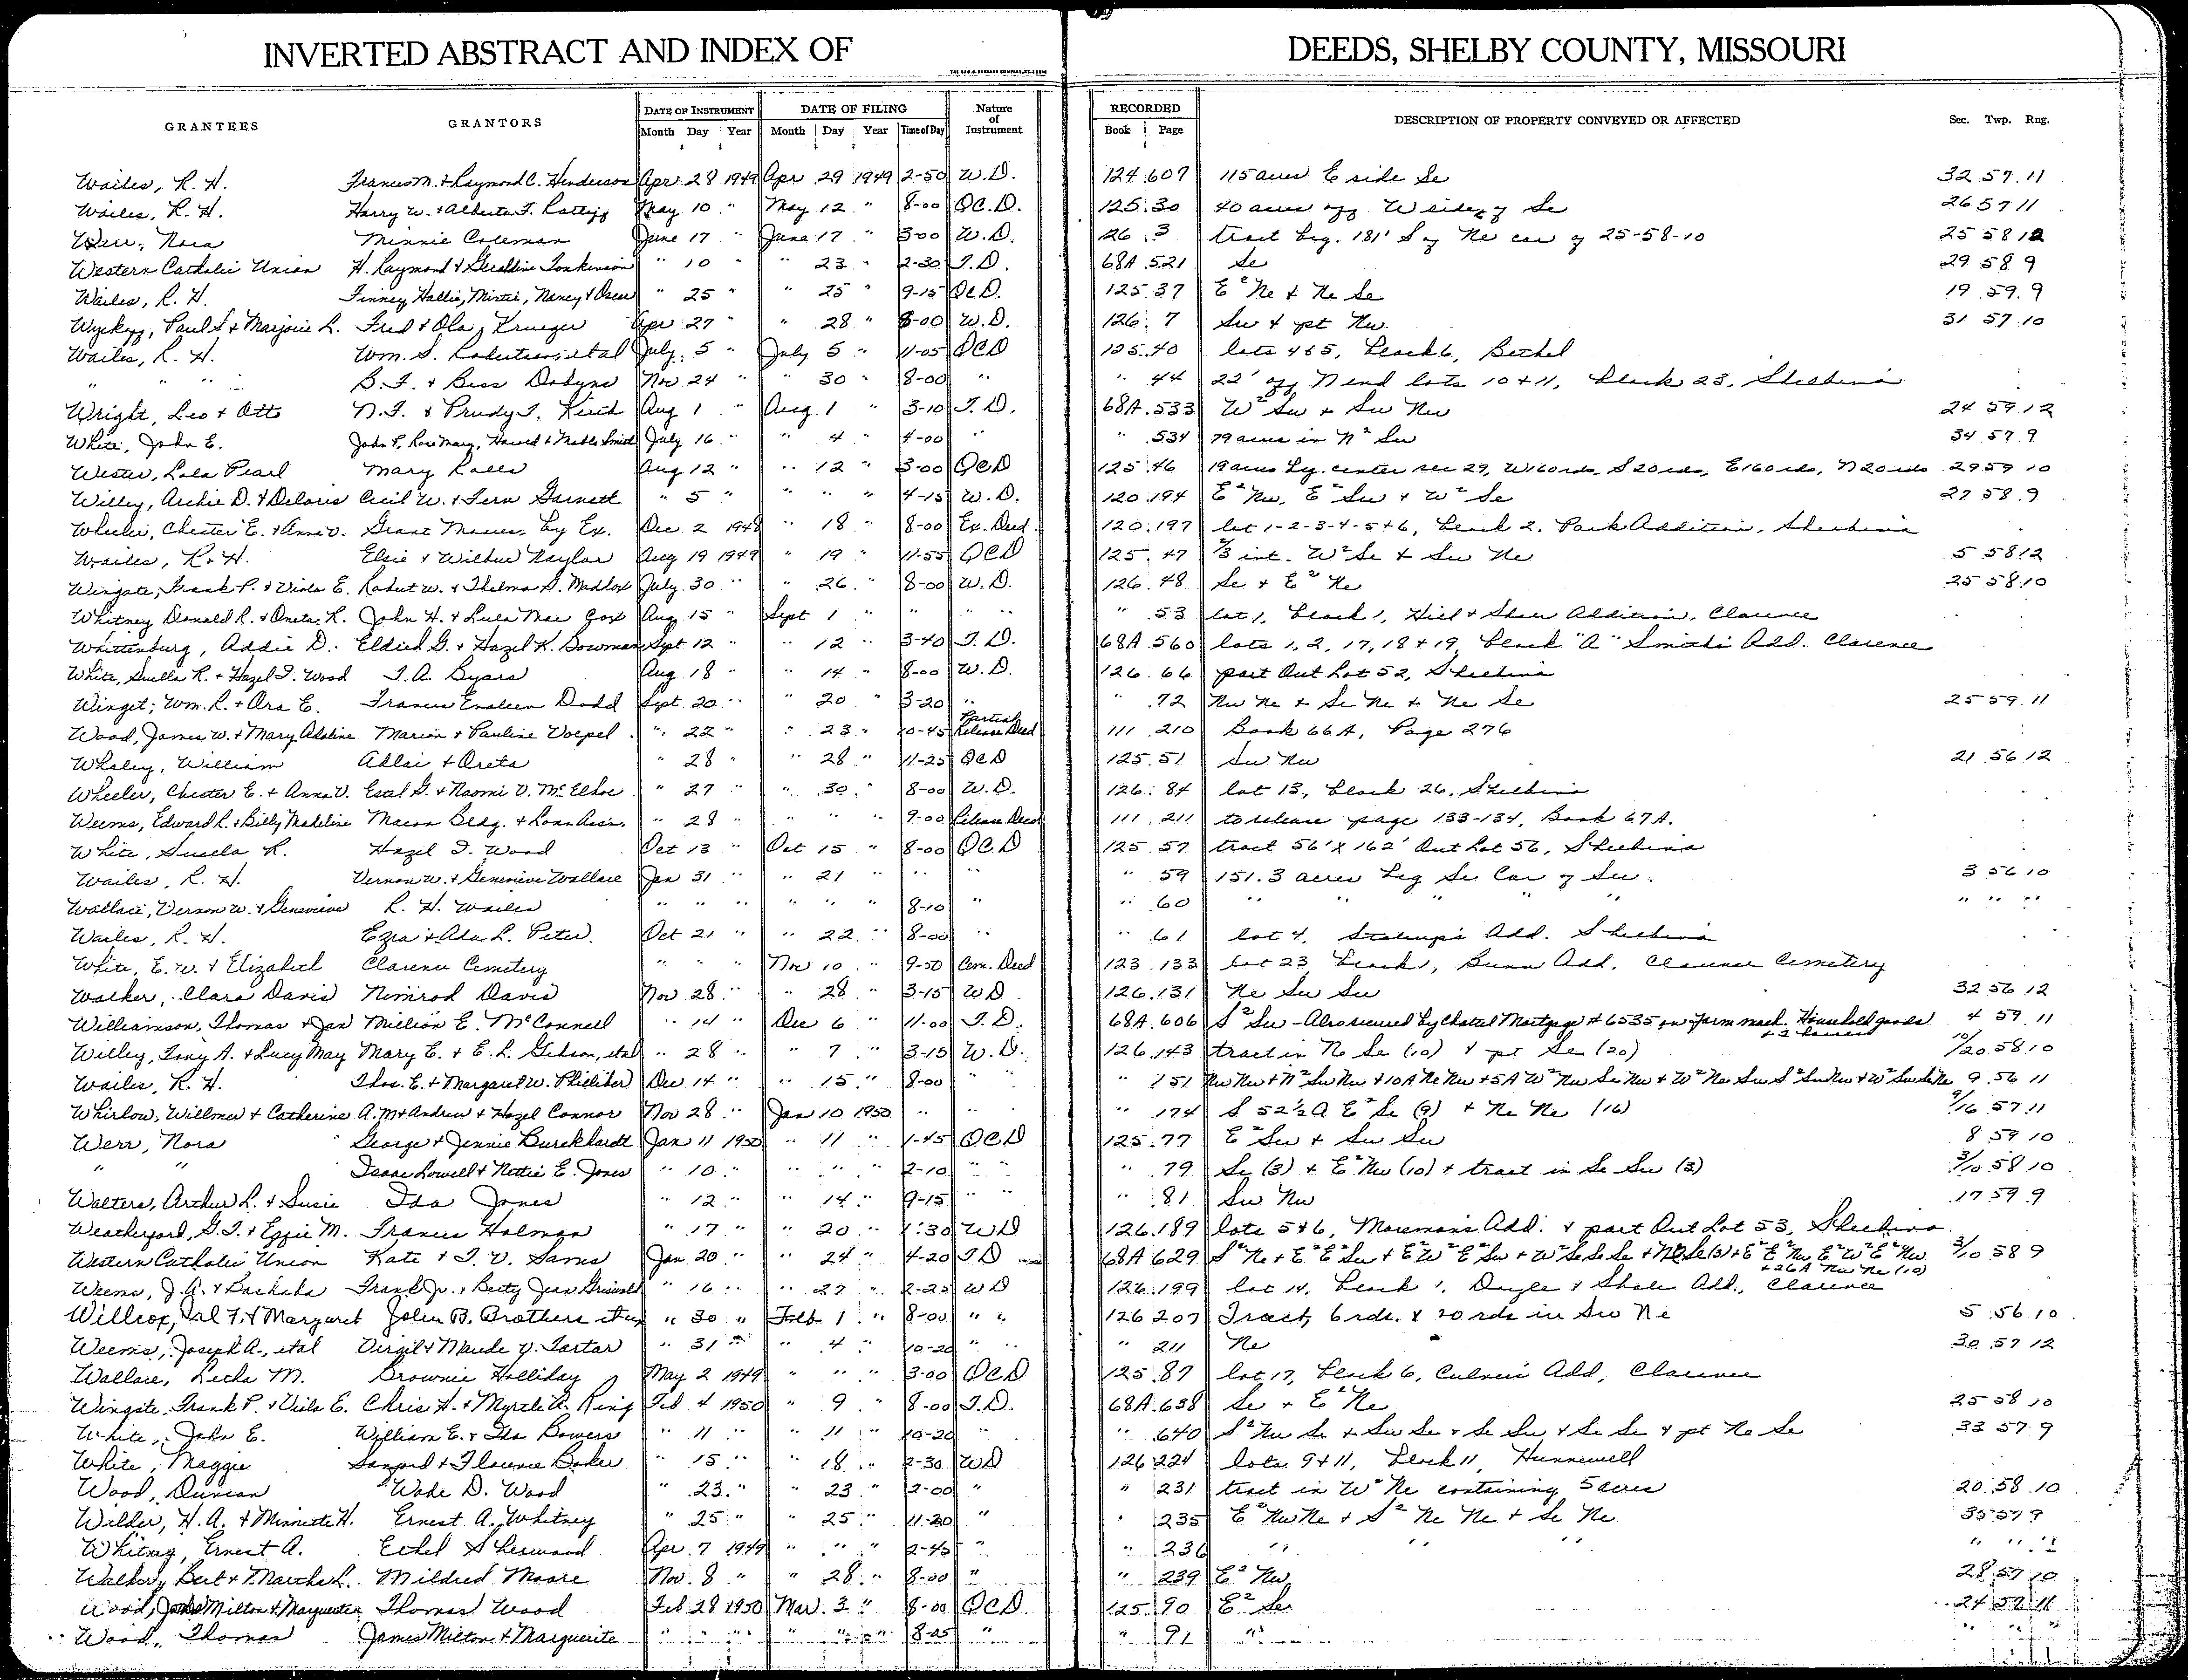 INVERTED ABSTRACT AND INDEX OF DEEDS, SHELBY COUNTY, MISSOURI
GRANTEES GRANTORS DATE OF INSTRUMENT Month Day Year DATE OF FILING Month Day Year Time of Day Nature of Instrument RECORDED Book Page DESCRIPTION OF PROPERTY CONVEYED OR AFFECTED Sec. Twp. Rng.
Wailes, R. H. Frances M. & Raymond C. Henderson Apr 28 1949 Apr 29 1949 2-50 W.D. 124 607 115 acres E side Se 32 57 11
Wailes, R. H. Harry W. & Alberta F. Ratliff May 10 " May 12 " 8-00 QC.D. 125 30 40 acres off W side of Se 26 57 11
Werr, Nora Minnie Coleman June 17 " June 17 " 3-00 W.D. 26 3 tract beg. 181' S of Ne cor of 25-58-10 25 58 10
Western Catholic Union H. Raymond & Geraldine Tonkinson " 10 " " 23 " 2-30 T.D. 68A 521 Se 29 58 9
Wailes, R. H. Finney, Hallie, Mintie, Nancy & Oscar " 25 " " 25 " 9-15 QCD. 125 37 E² Ne & Ne Se 19 59 9
Wyckoff, Paul S. & Marjorie L. Fred & Ola Krueger Apr 27 " " 28 " 8-00 W.D. 126 7 Sw & pt Nw. 31 57 10
Wailes, R. H. Wm. S. Robertson et al July 5 " July 5 " 11-05 QCD 125 40 lots 4 & 5, block 6, Bethel
" " " B. F. & Bess Dobyns Nov 24 " " 30 " 8-00 " " 44 22' off N end lots 10 & 11, block 23, Shelbina
Wright, Leo & Otto N. F. & Prudy J. Keith Aug 1 " Aug 1 " 3-10 T.D. 68A 533 W² Sw & Sw Nw 24 59 12
White, John E. John P., Rose Mary, Harold & Mable Smith July 16 " " 4 " 4-00 " " 534 79 acres in N² Sw 34 57 9
Wester, Lola Pearl Mary Ralls Aug 12 " " 12 " 3-00 QCD 125 46 19 acres by. center sec 29, W 160 rds, S 20 rds, E 160 rds, N 20 rds 29 59 10
Willey, Archie D. & Deloris Cecil W. & Fern Garnett " 5 " " " " 4-15 W.D. 120 194 E² Nw, E² Sw & W² Se 27 58 9
Wheeler, Chester E. & Anna V. Grant Moses, by Ex. Dec 2 1948 " 18 " 8-00 Ex. Deed 120 197 lot 1-2-3-4-5 & 6, block 2, Park Addition, Shelbina
Wailes, R. H. Elsie & Wilbur Naylor Aug 19 1949 " 19 " 11-55 QCD 125 47 2/3 int. W² Se & Sw Ne 5 58 12
Wingate, Frank P. & Viola E. Robert W. & Thelma G. Maddox July 30 " " 26 " 8-00 W.D. 126 48 Se & E² Ne 25 58 10
Whitney Donald R. & Oneta R. John H. & Lula Mae Cox Aug 15 " Sept 1 " " " " 53 lot 1, block 1, Hill & Shaw Addition, Clarence
Whittenburg, Addie D. Eldred G. & Hazel K. Bowman Sept 12 " " 12 " 3-40 T.D. 68A 560 lots 1, 2, 17, 18 & 19, block "A" Smith's Add. Clarence
White, Suella R. & Hazel I. Wood T. A. Byars Aug 18 " " 14 " 8-00 W.D. 126 66 part Out Lot 52, Shelbina
Winget, Wm. R. & Ora E. Frances Enaleen Dodd Sept 20 " " 20 " 3-20 " " 72 Nw Ne & Se Ne & Ne Se 25 59 11
Wood, James W. & Mary Adaline Marion & Pauline Voepel " 22 " " 23 " 10-45 Partial Release Deed 111 210 Book 66A, Page 276
Whaley, William Adlai & Oreta " 28 " " 28 " 11-25 QCD 125 51 Sw Nw 21 56 12
Wheeler, Chester E. & Anna V. Estel G. & Naomi V. McElhoe " 27 " " 30 " 8-00 W.D. 126 84 lot 13, block 26, Shelbina
Weems, Edward R. & Billy Madeline Macon Bldg. & Loan Assn. " 28 " " " " 9-00 Release Deed 111 211 to release page 133-134, Book 67A.
White, Suella R. Hazel I. Wood Oct 13 " Oct 15 " 8-00 QCD 125 57 tract 56' X 162' Out Lot 56, Shelbina
Wailes, R. H. Vernon W. & Genevieve Wallace Jan 31 " " 21 " " " " 59 151.3 acres beg Se Cor of Sw. 3 56 10
Wallace, Vernon W. & Genevieve R. H. Wailes " " " " " " 8-10 " " 60 " " " " " " "
Wailes, R. H. Ezra & Ada L. Peter Oct 21 " " 22 " 8-00 " " 61 lot 4, Stalcup's Add. Shelbina
White, E. W. & Elizabeth Clarence Cemetery " " " Nov 10 " 9-50 Cem. Deed 123 133 lot 23 block 1, Bunn Add. Clarence Cemetery
Walker, Clara Davis Nimrod Davis Nov 28 " " 28 " 3-15 WD 126 131 Ne Sw Sw 32 56 12
Williamson, Thomas & Jan Million E. McConnell " 14 " Dec 6 " 11-00 T.D. 68A 606 S² Sw - Also secured by Chattel Mortgage # 6535 on farm mach. Household goods 4 59 11
Willey, Tony A. & Lucy May Mary E. & E. L. Gibson, et al " 28 " " 7 " 3-15 W.D. 126 143 tract in Ne Se (10) & pt Se (20) 10/20 58 10
Wailes, R. H. Thos. E. & Margaret W. Phillibér Dec 14 " " 15 " 8-00 " " 151 Nw Nw + N² Sw Nw + 10A Ne Nw + 5A W² Nw Se Nw + W² Ne Sw S² Sw Nw + W² Sw Se Ne 9 56 11
Whirlow, Willmer & Catherine A. M & Andrew & Hazel Connor Nov 28 " Jan 10 1950 " " " 174 S 52½ A E² Se (9) & Ne Ne (16) 9/16 57 11
Werr, Nora George & Jennie Burckhardt Jan 11 1950 " 11 " 1-45 QCD 125 77 E² Sw & Sw Sw 8 59 10
" " Isaac Lowell & Nettie E. Jones " 10 " " " " 2-10 " " 79 Se (3) & E² Nw (10) & tract in Se Sw (3) 3/10 58 10
Walters, Arthur L. & Susie Ida Jones " 12 " " 14 " 9-15 " " 81 Sw Nw 17 59 9
Weatherford, G. T. & Effie M. Frances Holman " 17 " " 20 " 1:30 WD 126 189 lots 5 & 6, Moreman's Add. & part Out Lot 53, Shelbina
Western Catholic Union Kate & T. V. Sams Jan 20 " " 24 " 4-20 T.D 68A 629 S² Ne + E² E² Sw + E² W² E² Sw + W² Se Se Se + N² Se (3) + E² E² Nw E² W² E² Nw + 26A Nw Ne (10) 3/10 58 9
Weems, J. A. & Barbara Frank Jr. & Betty Jean Griswold " 16 " " 27 " 2-25 WD 126 199 lot 14, block 1, Doyle & Shale Add., Clarence
Willcox, Val F. & Margaret John B. Brothers et ux " 30 " Feb 1 " 8-00 " " 126 207 Tract, 6 rds. X 20 rds in Sw Ne 5 56 10
Weems, Joseph A., et al Virgil & Maude Y. Tartar " 31 " " 4 " 10-20 " " " 211 Ne 30 57 12
Wallace, Lecha M. Brownie Holliday May 2 1949 " " " 3-00 QCD 125 87 lot 17, block 6, Culver's Add, Clarence
Wingate, Frank P. & Viola E. Chris H. & Myrtle A. King Feb 4 1950 " 9 " 8-00 T.D. 68A 638 Se & E² Ne 25 58 10
White, John E. William E. & Ida Bowers " 11 " " 11 " 10-20 " " 640 S² Nw Se & Sw Se & Se Sw & Se Se & pt Ne Se 33 57 9
White, Maggie Sanford & Florence Baker " 15 " " 18 " 2-30 WD 126 224 lots 9 & 11, block 11, Hunnewell
Wood, Duncan Wade D. Wood " 23 " " 23 " 2-00 " " 231 tract in W² Ne containing 5 acres 20 58 10
Wilder, H. A. & Minnette H. Ernest A. Whitney " 25 " " 25 " 11-20 " " 235 E² Nw Ne & S² Ne Ne & Se Ne 35 57 9
Whitney, Ernest A. Ethel Sherwood Apr 7 1949 " " " 2-45 " " 236 " " " " " "
Walker, Bert & Martha L. Mildred Moore Nov. 8 " " 28 " 8-00 " " 239 E² Nw 28 57 10
Wood, James Milton & Marguerite Thomas Wood Feb 28 1950 Mar. 3 " 8-00 QCD 125 90 E² Se 24 58 11
Wood, Thomas James Milton & Marguerite " " " " " " 8-05 " " 91 " " " "